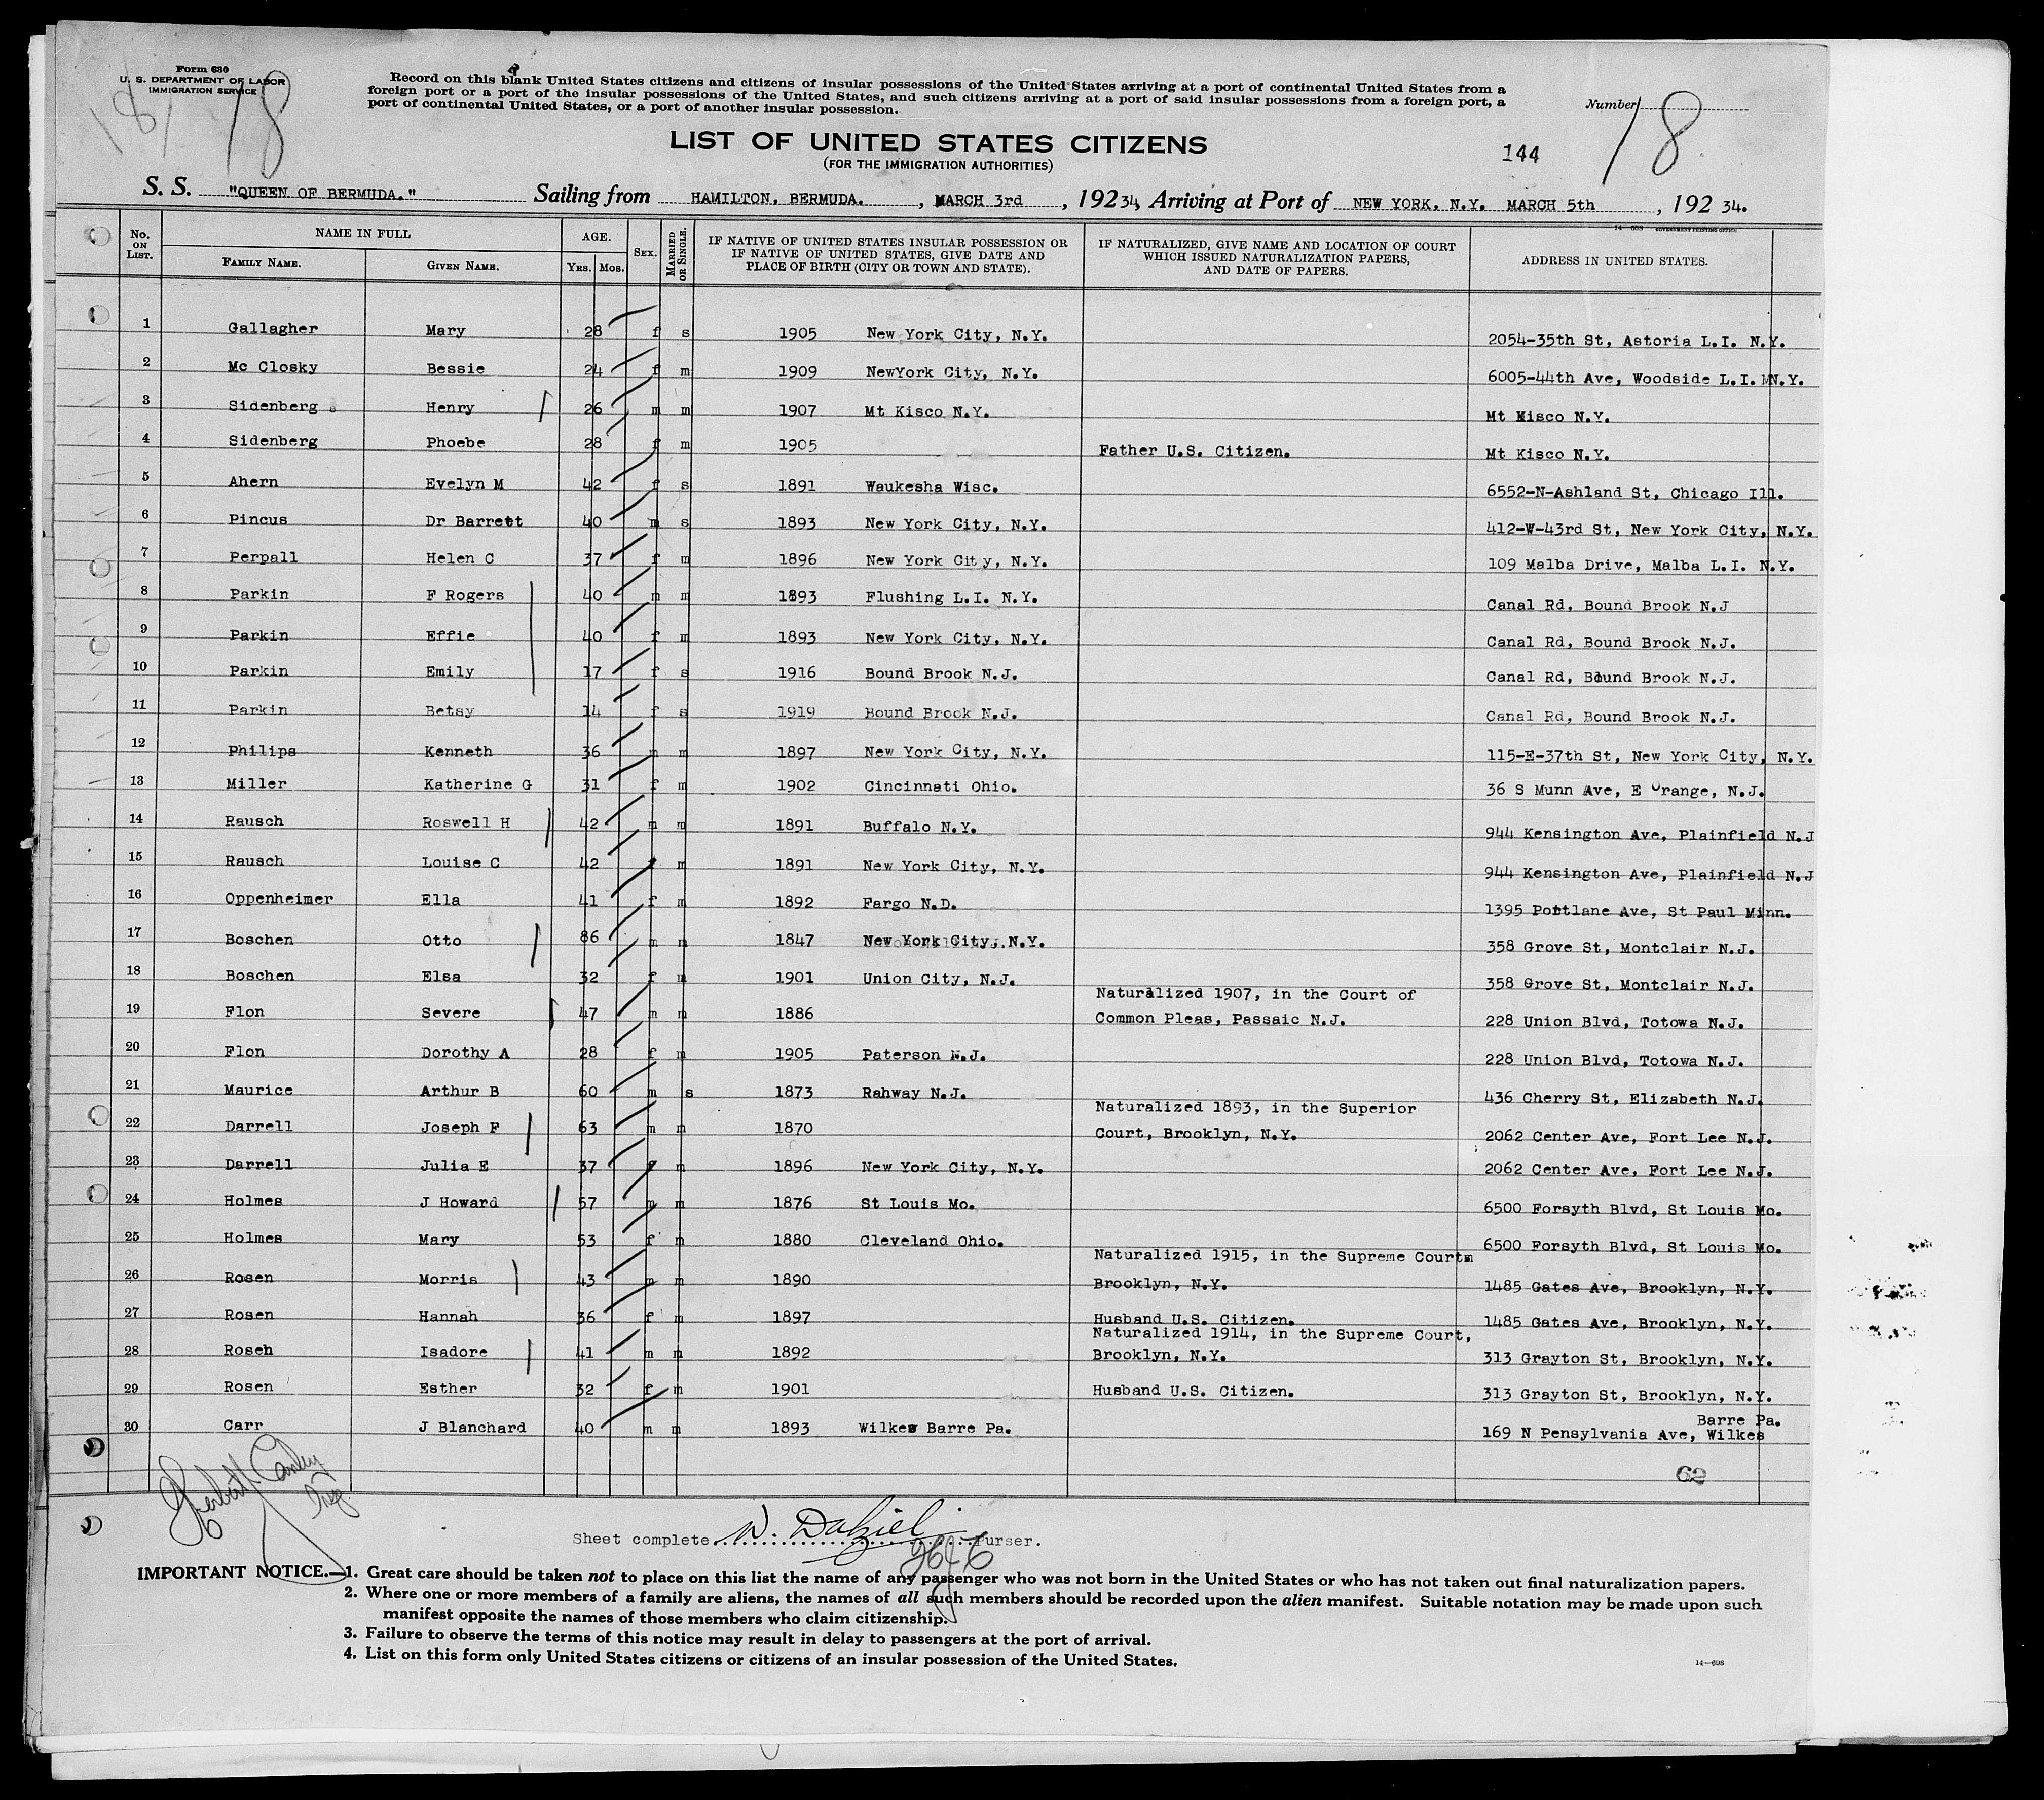 Form 630
U. S. DEPARTMENT OF LABOR
IMMIGRATION SERVICE
Record on this blank United States citizens and citizens of insular possessions of the United States arriving at a port of continental United States from a
foreign port or a port of the insular possessions of the United States, and such citizens arriving at a port of said insular possessions from a foreign port, a
port of continental United States, or a port of another insular possession.
Number 18
18 18
LIST OF UNITED STATES CITIZENS
(FOR THE IMMIGRATION AUTHORITIES)
144
S. S. "QUEEN OF BERMUDA." Sailing from HAMILTON, BERMUDA. , MARCH 3rd , 192 34, Arriving at Port of NEW YORK, N.Y. MARCH 5th , 192 34.
14—608 GOVERNMENT PRINTING OFFICE
No. ON LIST. NAME IN FULL FAMILY NAME. GIVEN NAME. AGE. YRS. MOS. SEX. MARRIED OR SINGLE. IF NATIVE OF UNITED STATES INSULAR POSSESSION OR IF NATIVE OF UNITED STATES, GIVE DATE AND PLACE OF BIRTH (CITY OR TOWN AND STATE). IF NATURALIZED, GIVE NAME AND LOCATION OF COURT WHICH ISSUED NATURALIZATION PAPERS, AND DATE OF PAPERS. ADDRESS IN UNITED STATES.
1 Gallagher Mary 28 f s 1905 New York City, N.Y. 2054-35th St, Astoria L.I. N.Y.
2 Mc Closky Bessie 24 f m 1909 NewYork City, N.Y. 6005-44th Ave, Woodside L.I. N.Y.
3 Sidenberg Henry 26 m m 1907 Mt Kisco N.Y. Mt Kisco N.Y.
4 Sidenberg Phoebe 28 f m 1905 Father U.S. Citizen. Mt Kisco N.Y.
5 Ahern Evelyn M 42 f s 1891 Waukesha Wisc. 6552-N-Ashland St, Chicago Ill.
6 Pincus Dr Barrett 40 m s 1893 New York City, N.Y. 412-W-43rd St, New York City, N.Y.
7 Perpall Helen C 37 f m 1896 New York City, N.Y. 109 Malba Drive, Malba L.I. N.Y.
8 Parkin F Rogers 40 m m 1893 Flushing L.I. N.Y. Canal Rd, Bound Brook N.J
9 Parkin Effie 40 f m 1893 New York City, N.Y. Canal Rd, Bound Brook N.J.
10 Parkin Emily 17 f s 1916 Bound Brook N.J. Canal Rd, Bound Brook N.J.
11 Parkin Betsy 14 f s 1919 Bound Brook N.J. Canal Rd, Bound Brook N.J.
12 Philips Kenneth 36 m m 1897 New York City, N.Y. 115-E-37th St, New York City, N.Y.
13 Miller Katherine G 31 f m 1902 Cincinnati Ohio. 36 S Munn Ave, E Orange, N.J.
14 Rausch Roswell H 42 m m 1891 Buffalo N.Y. 944 Kensington Ave, Plainfield N.J
15 Rausch Louise C 42 f m 1891 New York City, N.Y. 944 Kensington Ave, Plainfield N.J
16 Oppenheimer Ella 41 f m 1892 Fargo N.D. 1395 Portlane Ave, St Paul Minn.
17 Boschen Otto 86 m m 1847 New York City, N.Y. 358 Grove St, Montclair N.J.
18 Boschen Elsa 32 f m 1901 Union City, N.J. 358 Grove St, Montclair N.J.
Naturalized 1907, in the Court of
19 Flon Severe 47 m m 1886 Common Pleas, Passaic N.J. 228 Union Blvd, Totowa N.J.
20 Flon Dorothy A 28 f m 1905 Paterson N.J. 228 Union Blvd, Totowa N.J.
21 Maurice Arthur B 60 m s 1873 Rahway N.J. 436 Cherry St, Elizabeth N.J.
Naturalized 1893, in the Superior
22 Darrell Joseph F 63 m m 1870 Court, Brooklyn, N.Y. 2062 Center Ave, Fort Lee N.J.
23 Darrell Julia E 37 f m 1896 New York City, N.Y. 2062 Center Ave, Fort Lee N.J.
24 Holmes J Howard 57 m m 1876 St Louis Mo. 6500 Forsyth Blvd, St Louis Mo.
25 Holmes Mary 53 f m 1880 Cleveland Ohio. 6500 Forsyth Blvd, St Louis Mo.
Naturalized 1915, in the Supreme Court
26 Rosen Morris 43 m m 1890 Brooklyn, N.Y. 1485 Gates Ave, Brooklyn, N.Y.
27 Rosen Hannah 36 f m 1897 Husband U.S. Citizen. 1485 Gates Ave, Brooklyn, N.Y.
Naturalized 1914, in the Supreme Court,
28 Rosen Isadore 41 m m 1892 Brooklyn, N.Y. 313 Grayton St, Brooklyn, N.Y.
29 Rosen Esther 32 f m 1901 Husband U.S. Citizen. 313 Grayton St, Brooklyn, N.Y.
Barre Pa.
30 Carr J Blanchard 40 m m 1893 Wilkes Barre Pa. 169 N Pensylvania Ave, Wilkes
62
Sheet complete W. Dalziel Purser.
IMPORTANT NOTICE.—1. Great care should be taken not to place on this list the name of any passenger who was not born in the United States or who has not taken out final naturalization papers.
2. Where one or more members of a family are aliens, the names of all such members should be recorded upon the alien manifest. Suitable notation may be made upon such
manifest opposite the names of those members who claim citizenship.
3. Failure to observe the terms of this notice may result in delay to passengers at the port of arrival.
4. List on this form only United States citizens or citizens of an insular possession of the United States.
14—608